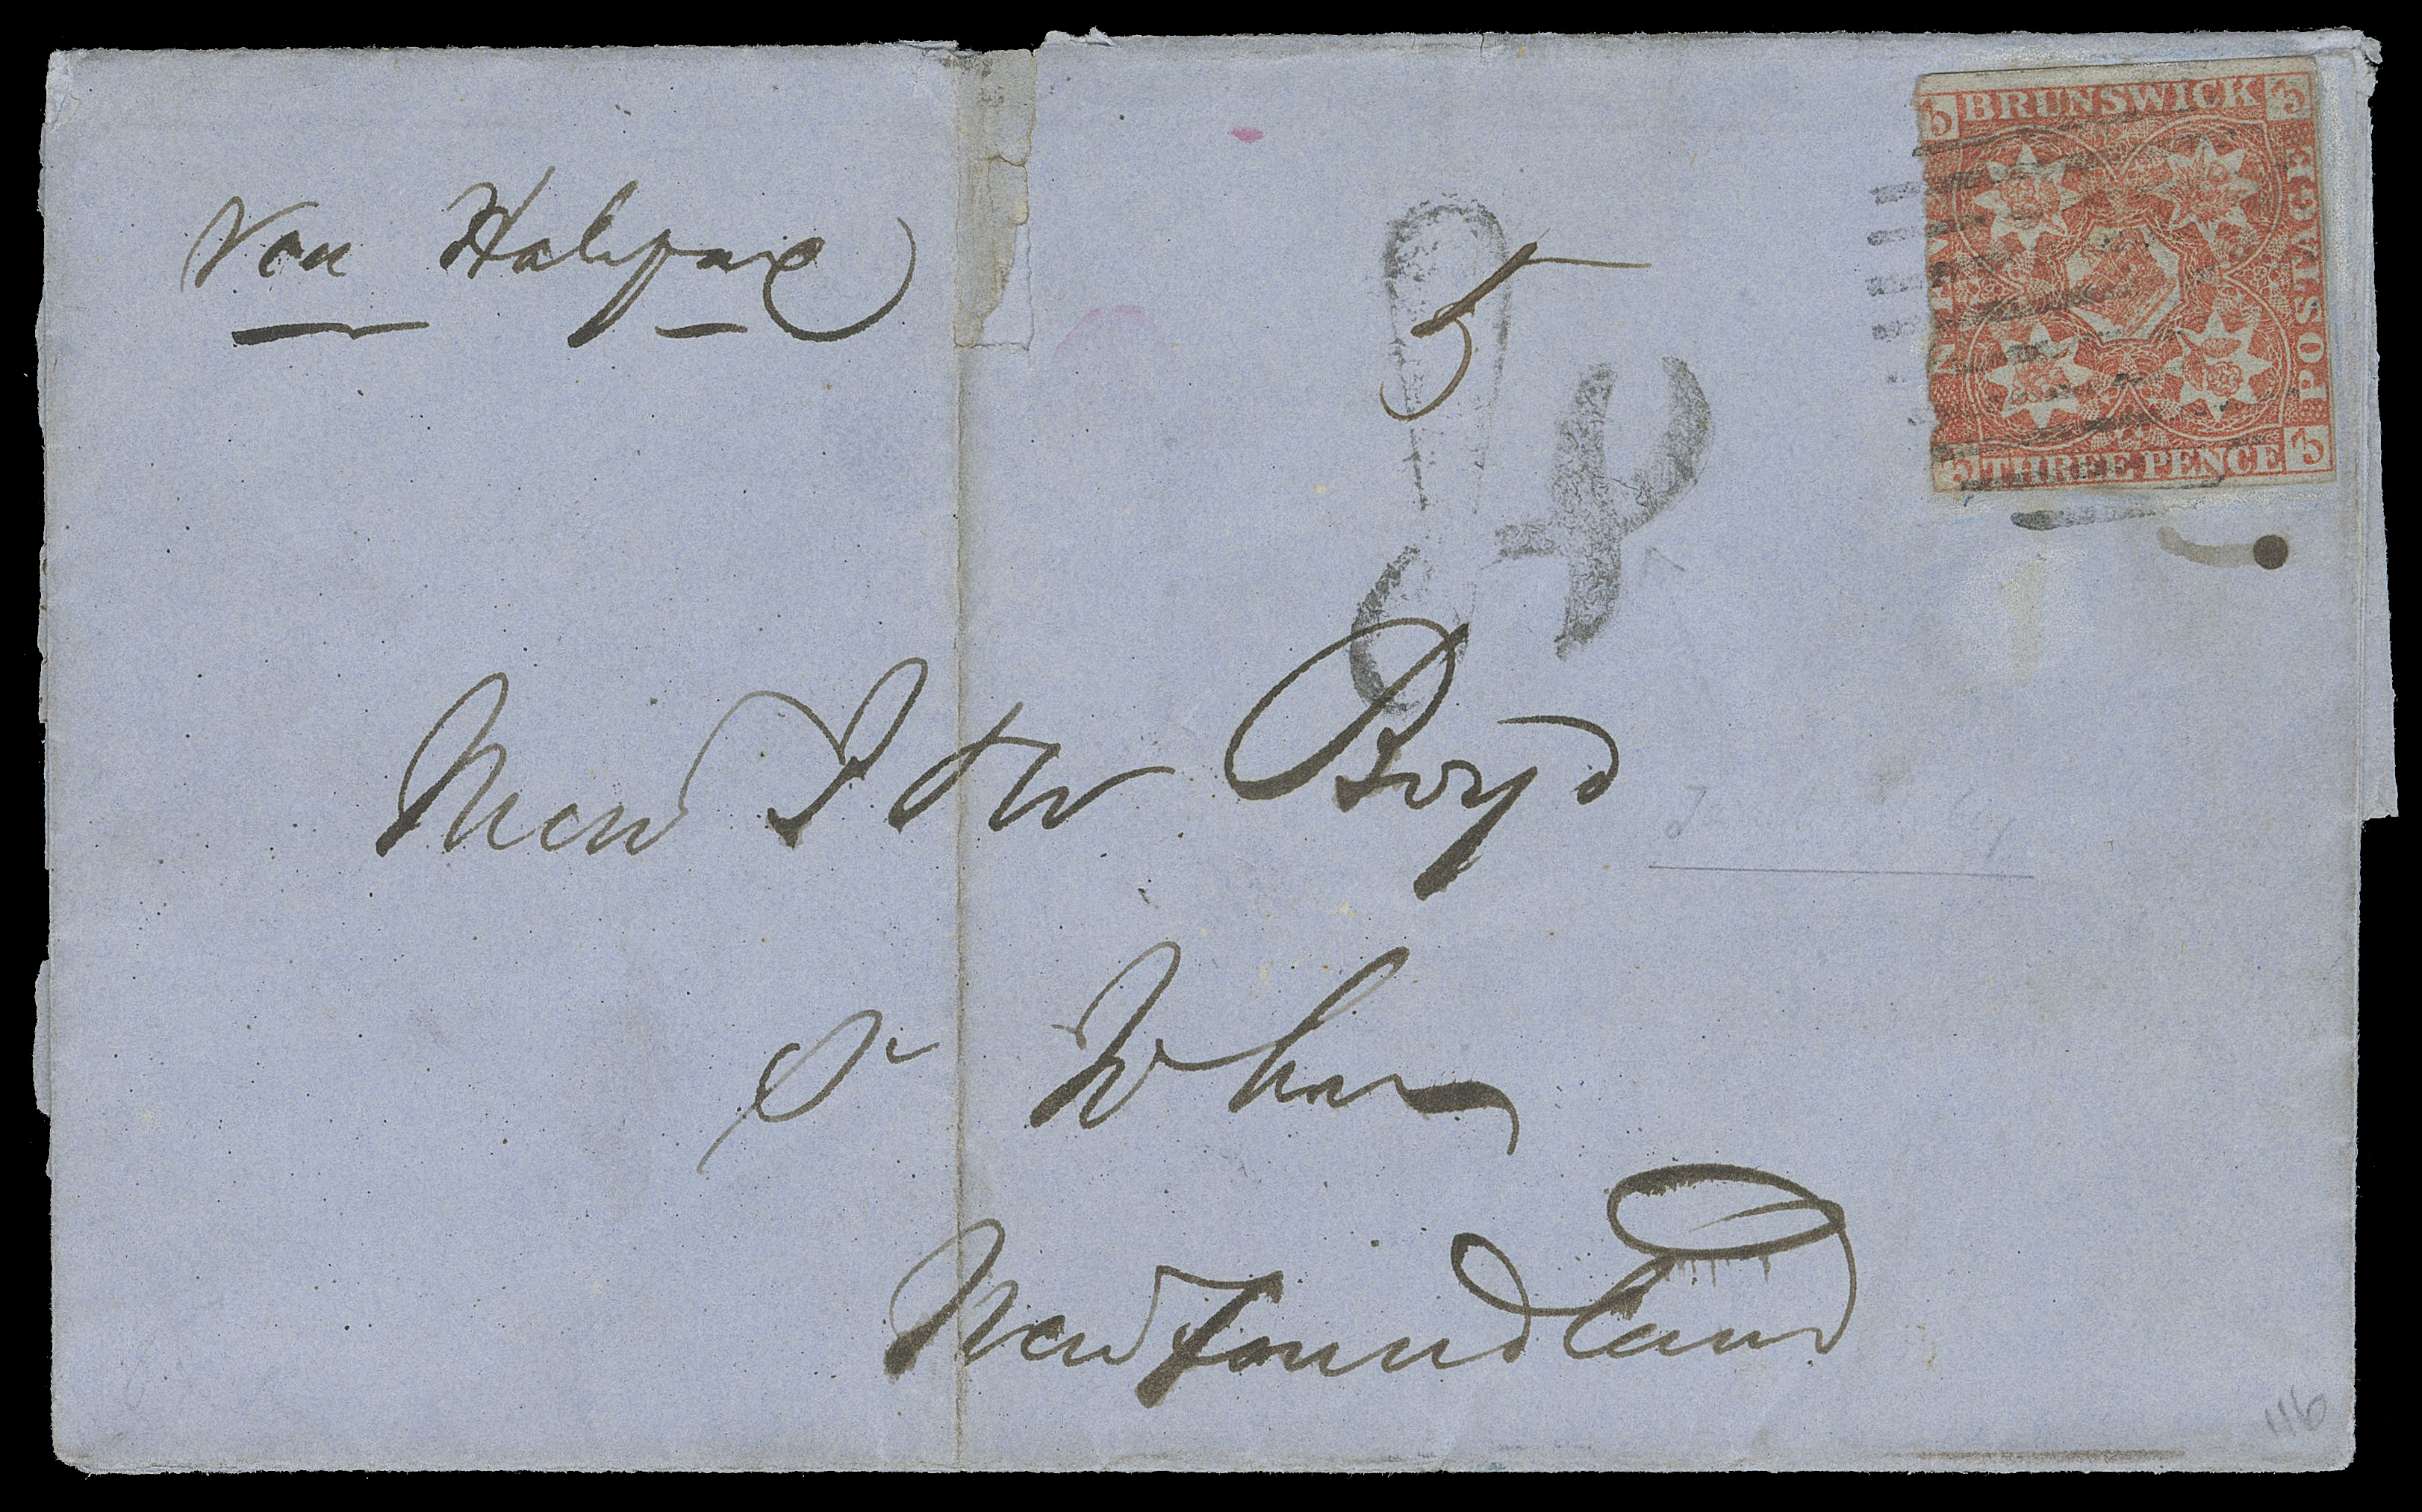 Via Halifax
5
4
BRUNSWICK
POSTAGE
THREE PENCE
3
3
3
3
Mess J & W Boyd
St Johns
Newfoundland
116